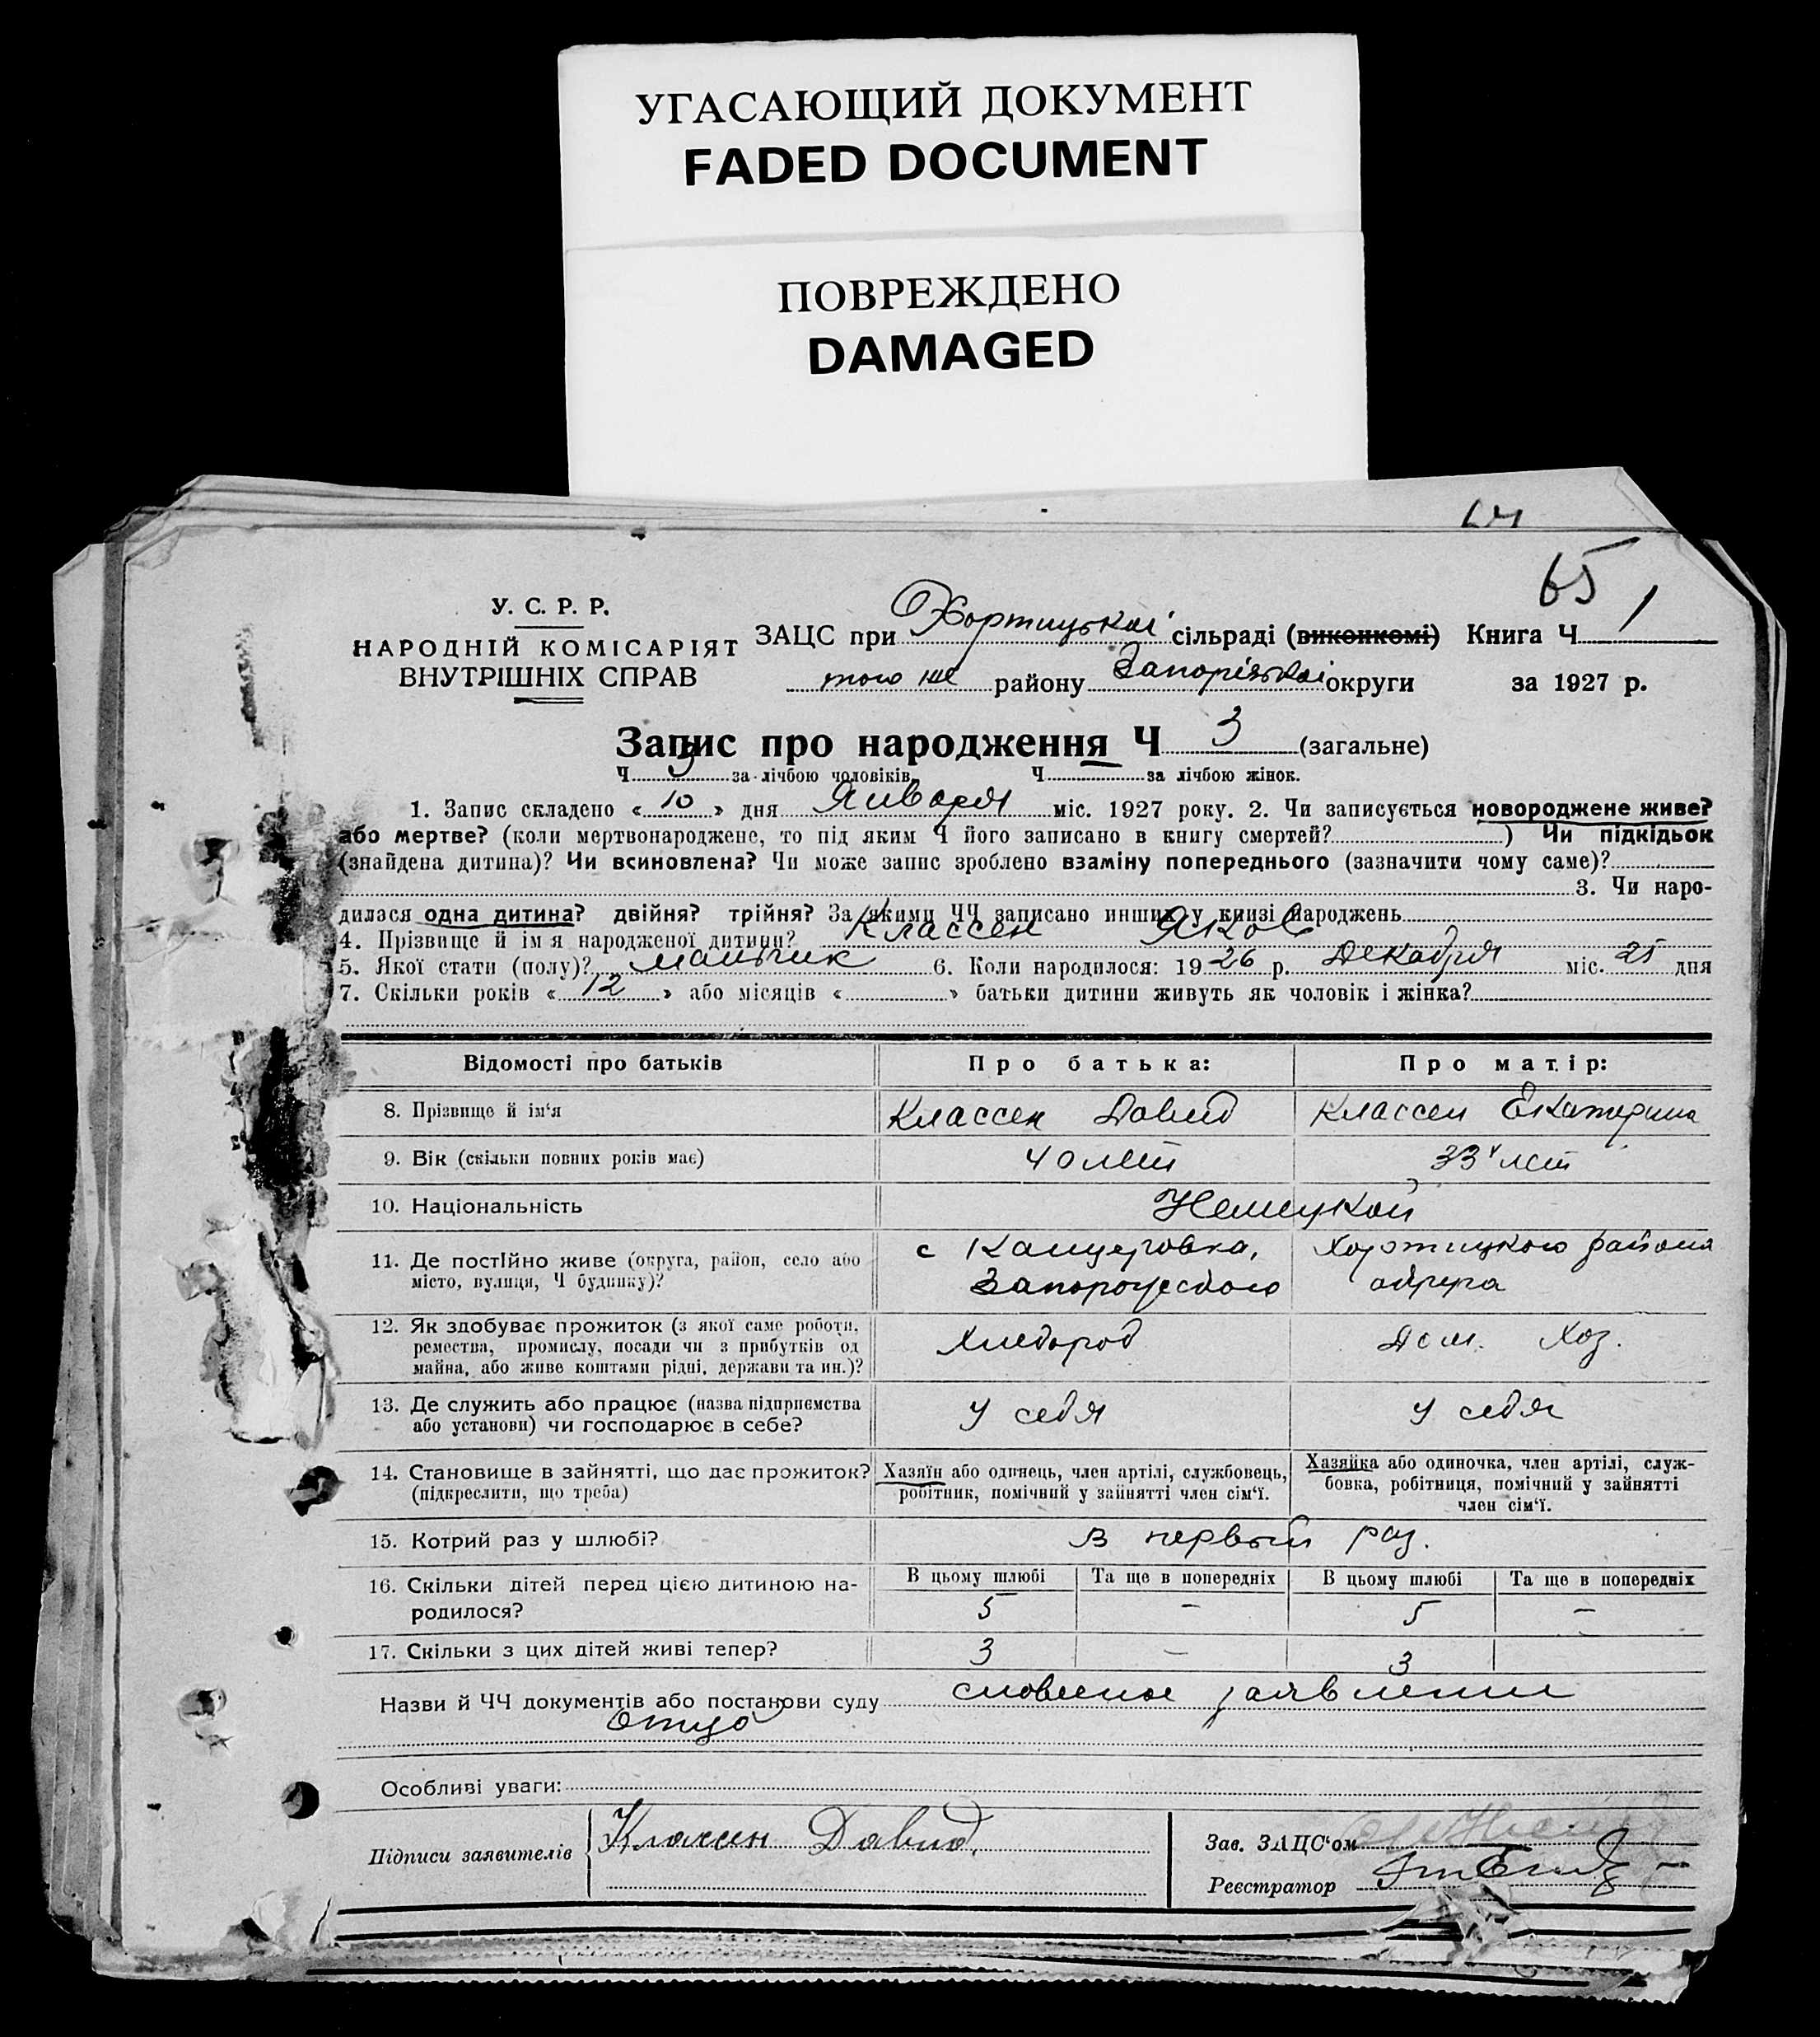 УГАСАЮЩИЙ ДОКУМЕНТ
FADED DOCUMENT
ПОВРЕЖДЕНО
DAMAGED
65
У. С. Р. Р.
НАРОДНІЙ КОМІСАРІЯТ
ВНУТРІШНІХ СПРАВ
ЗАЦС при Хортицької сільраді (виконкомі) Книга Ч 1
того же району Запорізької округи за 1927 р.
Запис про народження Ч 3 (загальне)
Ч 3 за лічбою чоловіків. Ч за лічбою жінок.
1. Запис складено « 10 » дня Января міс. 1927 року. 2. Чи записується новороджене живе?
або мертве? (коли мертвонароджене, то під яким Ч його записано в книгу смертей? ) Чи підкідьок
(знайдена дитина)? Чи всиновлена? Чи може запис зроблено взаміну попереднього (зазначити чому саме)?
3. Чи наро-
дилася одна дитина? двійня? трійня? За якими ЧЧ записано инших у книзі народжень
4. Прізвище й ім я народженої дитини? Классен Яков
5. Якої стати (полу)? мальчик 6. Коли народилося: 19 26 р. Декабря міс. 25 дня
7. Скільки років « 12 » або місяців « » батьки дитини живуть як чоловік і жінка?
Відомості про батьків Про батька: Про матір:
8. Прізвище й ім‘я Классен Давид Классен Екатерина
9. Вік (скільки повних років має) 40 лет 33 лет
10. Національність Немецкой
11. Де постійно живе (округа, район, село або с Канцеровка, Хортицкого района
місто, вулиця, Ч будинку)? Запорожского округа
12. Як здобуває прожиток (з якої саме роботи,
ремества, промислу, посади чи з прибутків од Хлебороб Дом. Хоз.
майна, або живе коштами рідні, держави та ин.)?
13. Де служить або працює (назва підприємства У себя У себя
або установи) чи господарює в себе?
14. Становище в зайнятті, що дає прожиток? Хазяїн або одинець, член артілі, службовець, Хазяйка або одиночка, член артілі, служ-
(підкреслити, що треба) робітник, помічний у зайнятті член сім‘ї. бовка, робітниця, помічний у зайнятті
член сім‘ї.
15. Котрий раз у шлюбі? в первый раз.
16. Скільки дітей перед цією дитиною на- В цьому шлюбі Та ще в попередніх В цьому шлюбі Та ще в попередніх
родилося? 5 – 5 –
17. Скільки з цих дітей живі тепер? 3 – 3
Назви й ЧЧ документів або постанови суду словесное заявление
отца
Особливі уваги:
Підписи заявителів Классен Давид.
Зав. ЗАЦС‘ом
Реєстратор